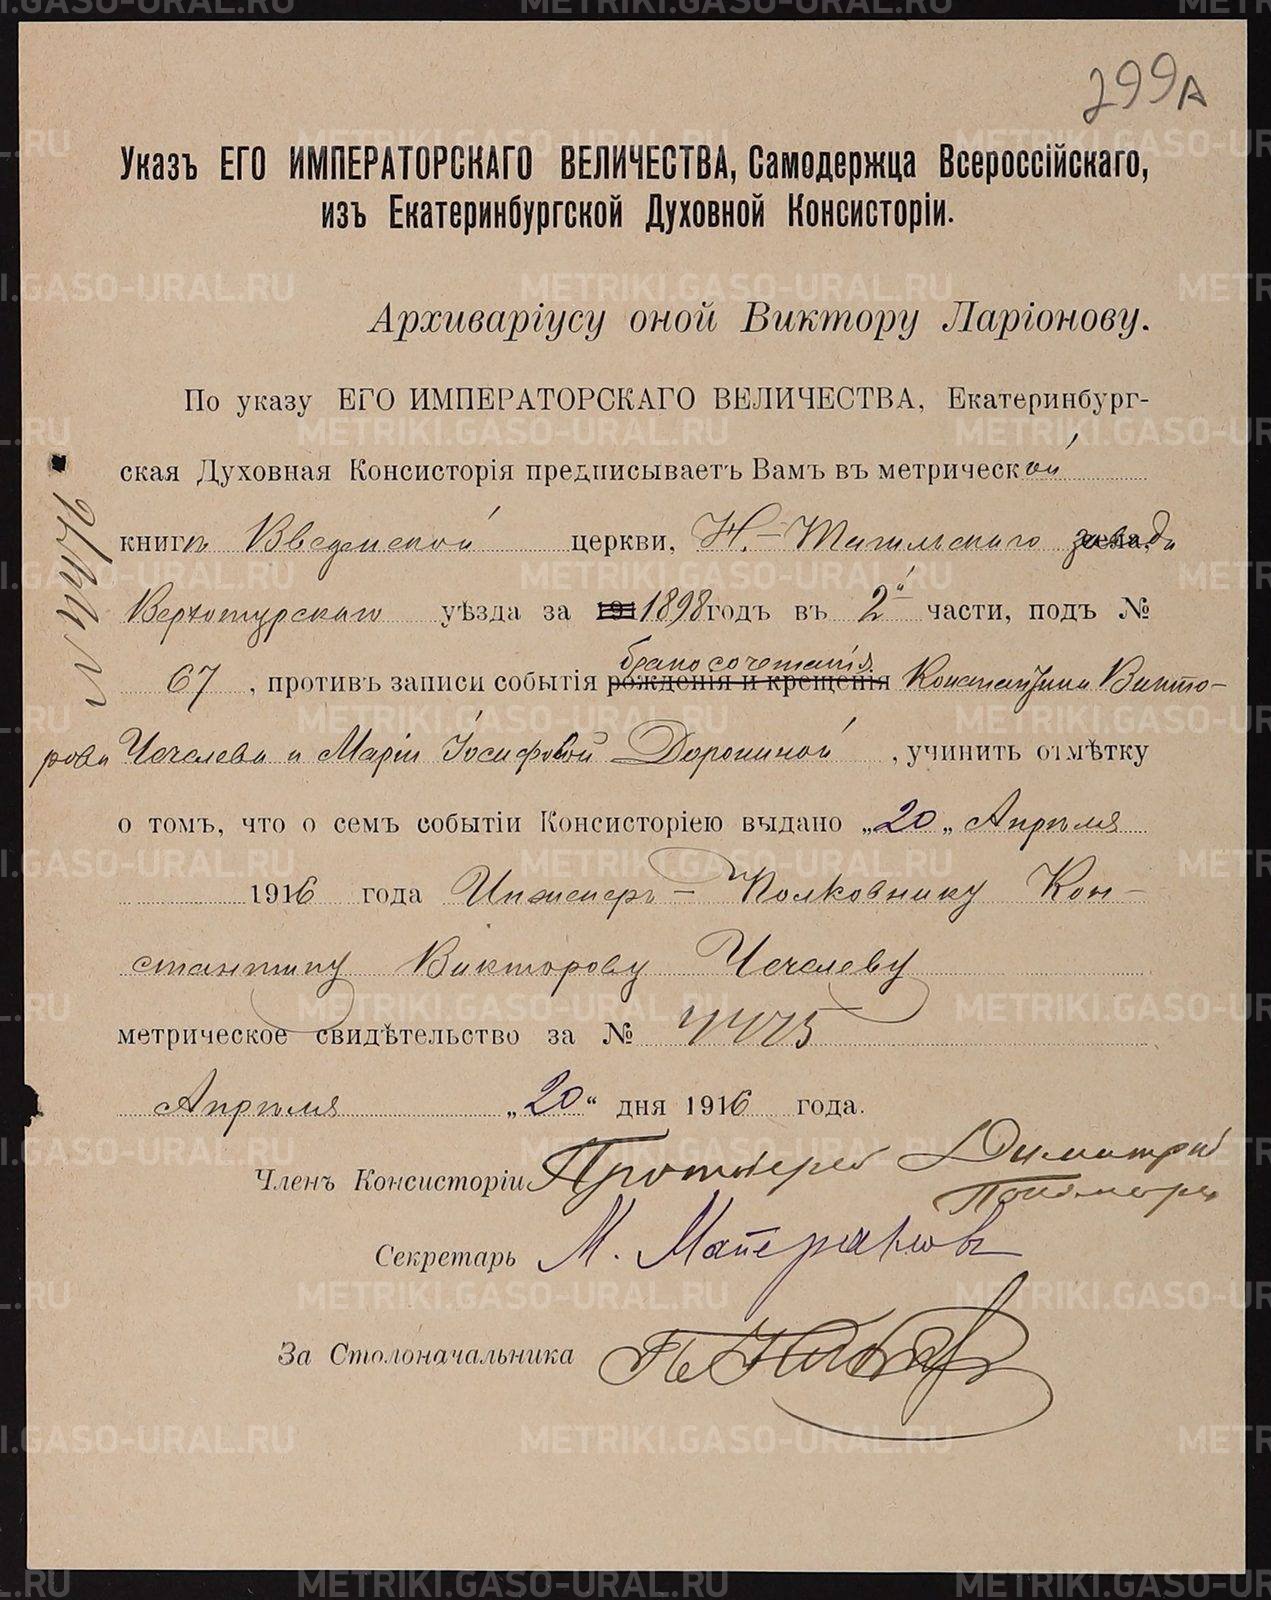 299А
Указъ ЕГО ИМПЕРАТОРСКАГО ВЕЛИЧЕСТВА, Самодержца Всероссійскаго,
изъ Екатеринбургской Духовной Консисторіи.
Архиваріусу оной Виктору Ларіонову.
По указу ЕГО ИМПЕРАТОРСКАГО ВЕЛИЧЕСТВА, Екатеринбург-
ская Духовная Консисторія предписываетъ Вамъ въ метрической
книгѣ Введенской церкви, Н.-Тагильскаго завода
Верхотурскаго уѣзда за 1898 годъ въ 2й части, подъ №
67, противъ записи событія рожденія и крещенія бракосочетанія Константина Викто-
рова Чечелева и Маріи Іосифовой Дорониной, учинить отмѣтку
о томъ, что о семъ событіи Консисторіею выдано „20„ Апрѣля
1916 года Инженеръ-Полковнику Кон-
стантину Викторову Чечелеву
метрическое свидѣтельство за № 4475
Апрѣля „20“ дня 1916 года.
Членъ Консисторіи Протоіерей Димитрій
Секретарь М.
За Столоначальника
№ 4476
METRIKI.GASO-URAL.RU